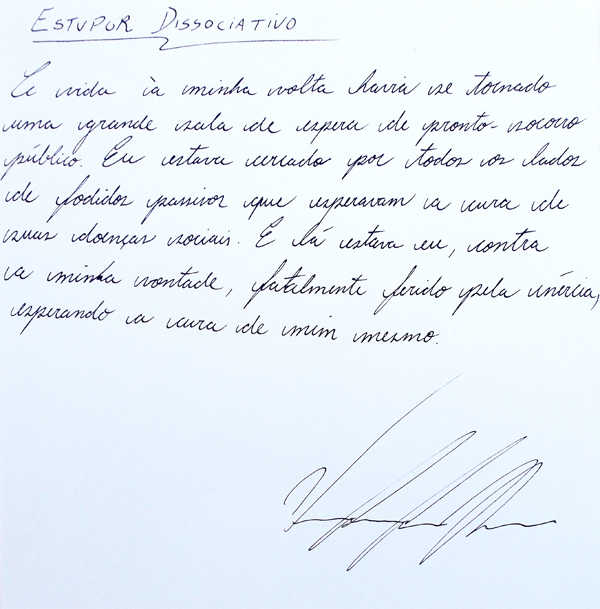 ESTUPOR DISSOCIATIVO
A vida à minha volta havia se tornado
uma grande sala de espera de pronto-socorro
público. Eu estava cercado por todos os lados
de fodidos passivos que esperavam a cura de
suas doenças sociais. E lá estava eu, contra
a minha vontade, fatalmente ferido pela inércia,
esperando a cura de mim mesmo.